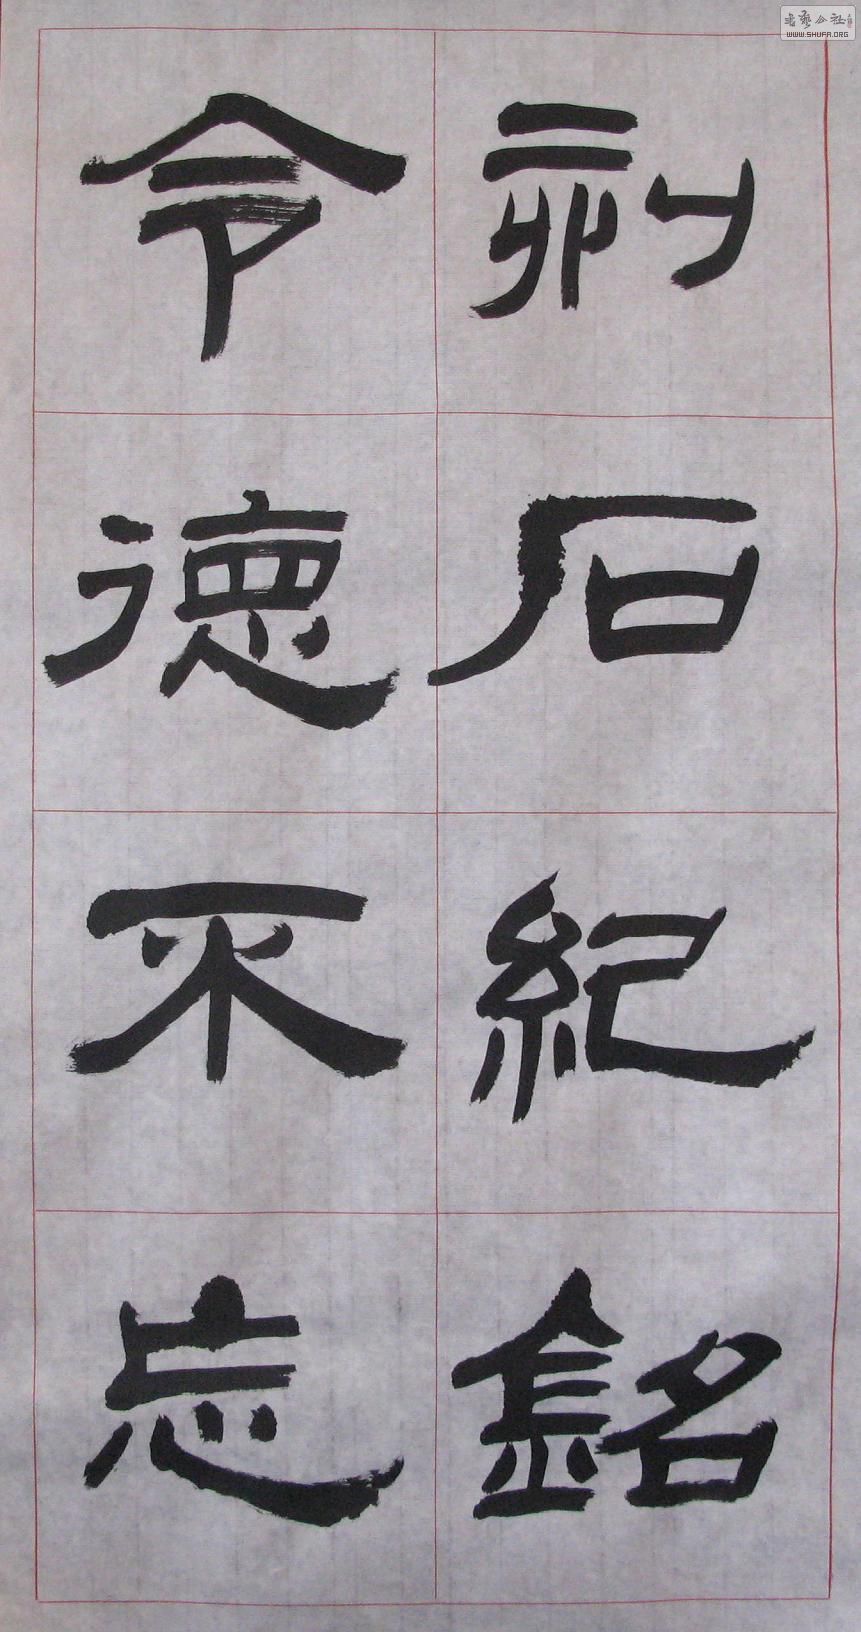 刊石紀銘
令德不忘
书艺公社
WWW.SHUFA.ORG